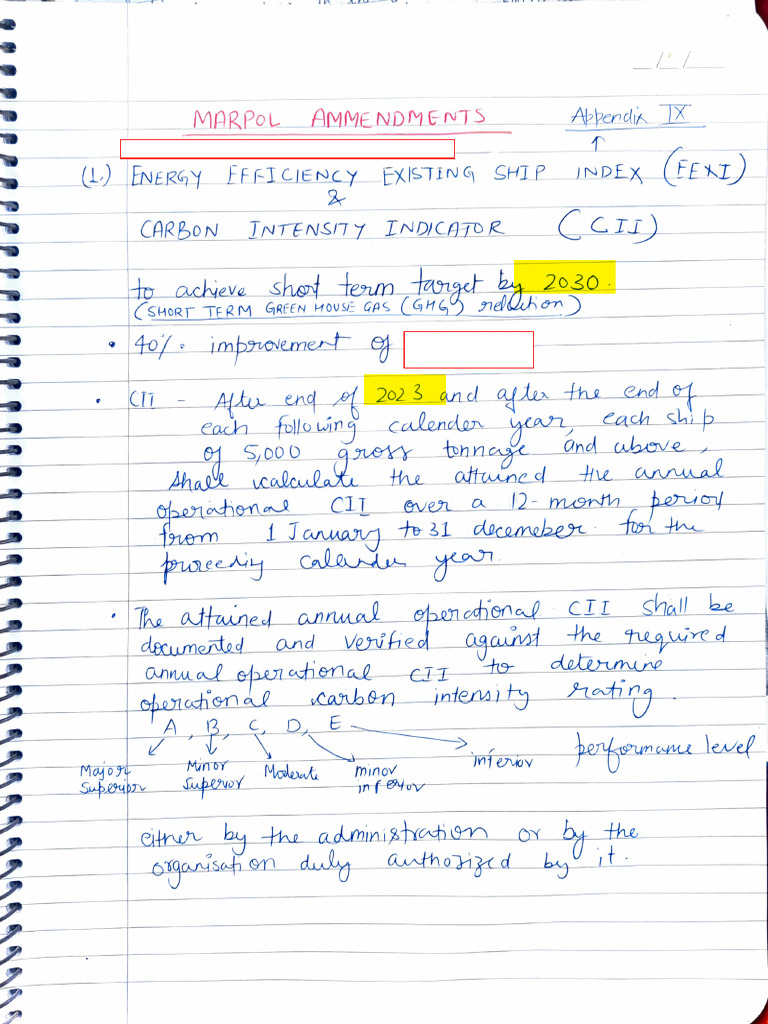 MARPOL AMMENDMENTS
Appendix IX
(1.) ENERGY EFFICIENCY EXISTING SHIP INDEX (EEXI)
&
CARBON INTENSITY INDICATOR (CII)
to achieve short term target by 2030.
(SHORT TERM GREEN HOUSE GAS (GHG) reduction)
• 40% improvement of
• CII - After end of 2023 and after the end of
each following calender year, each ship
of 5,000 gross tonnage and above,
shall calculate the attained the annual
operational CII over a 12-month period
from 1 January to 31 decemeber for the
preceding calender year.
• The attained annual operational CII shall be
documented and verified against the required
annual operational CII to determine
operational carbon intensity rating.
A, B, C, D, E
performance level
Major Superior
Minor Superior
Moderate
minor inferior
inferior
either by the administration or by the
organisation duly authorized by it.